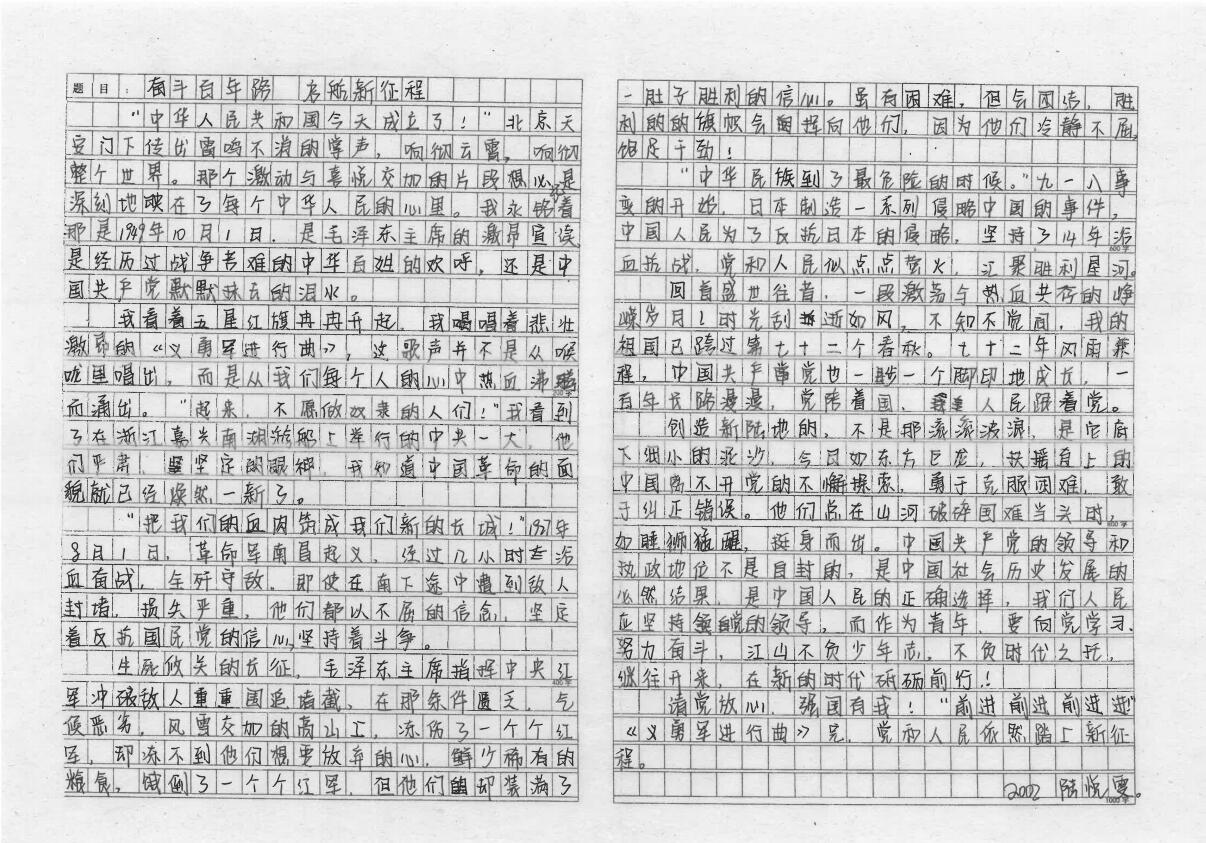 题目: 奋斗百年路 启航新征程
"中华人民共和国今天成立了!"北京天
安门下传出雷鸣不消的掌声,响彻云霄,响彻
整个世界。那个激动与喜悦交加的片段想必是
深刻地映在了每个中华人民的心里。我永铭着
那是1949年10月1日,是毛泽东主席的激昂宣读
是经历过战争苦难的中华百姓的欢呼,还是中
国共产党默默抹去的泪水。
我看着五星红旗冉冉升起,我喝唱着悲壮
激昂的《义勇军进行曲》,这歌声并不是从喉
咙里唱出,而是从我们每个人的心中热血沸腾
200字
而涌出。"起来,不愿做奴隶的人们!"我看到
了在浙江嘉兴南湖游船上举行的中央一大,他
们严肃、坚定的眼神,我知道中国革命的面
貌就已经焕然一新了。
"把我们的血肉筑成我们新的长城!"1927年
8月1日,革命军南昌起义,经过几小时浴
血奋战,全歼守敌。即使在南下途中遭到敌人
封堵,损失严重,他们都以不屈的信念,坚定
着反抗国民党的信心,坚持着斗争。
生死攸关的长征,毛泽东主席指挥中央红
400字
军冲破敌人重重围追堵截,在那条件匮乏,气
候恶劣,风雪交加的高山上,冻伤了一个个红
军,却冻不到他们想要放弃的心,鲜少稀有的
粮食,饿倒了一个个红军,但他们的却装满了
一胜了胜利的信心。虽有困难,但会团结,胜
利的的旗帜会挥向他们,因为他们冷静不屈,
饱足干劲!
"中华民族到了最危险的时候。"九一八事
变的开始,日本制造一系列侵略中国的事件,
中国人民为了反抗日本的侵略,坚持了14年浴
600字
血抗战,党和人民似点点萤火,汇聚胜利星河。
回首盛世往昔,一段激荡与热血共存的峥
嵘岁月!时光刮逝如风,不知不觉间,我的
祖国已跨过第七十二个春秋。七十二年风雨兼
程,中国共产党也一步一个脚印地成长,一
百年长路漫漫,党陪着国,人民跟着党。
创造新陆地的,不是那滚滚波浪,是它底
下细小的泥沙,今日如东方巨龙,扶摇直上的
中国离不开党的不懈探索,勇于克服困难,敢
800字
于纠正错误。他们总在山河破碎国难当头时,
如睡狮猛醒,挺身而出。中国共产党的领导和
执政地位不是自封的,是中国社会历史发展的
必然结果,是中国人民的正确选择,我们人民
应坚持党的领导,而作为青年,要向党学习、
努力奋斗,江山不负少年志,不负时代之托,
继往开来,在新的时代砥砺前行!
请党放心,强国有我!"前进前进前进进!"
《义勇军进行曲》完,党和人民依然踏上新征
程。
2002 陆悦雯。
1000字